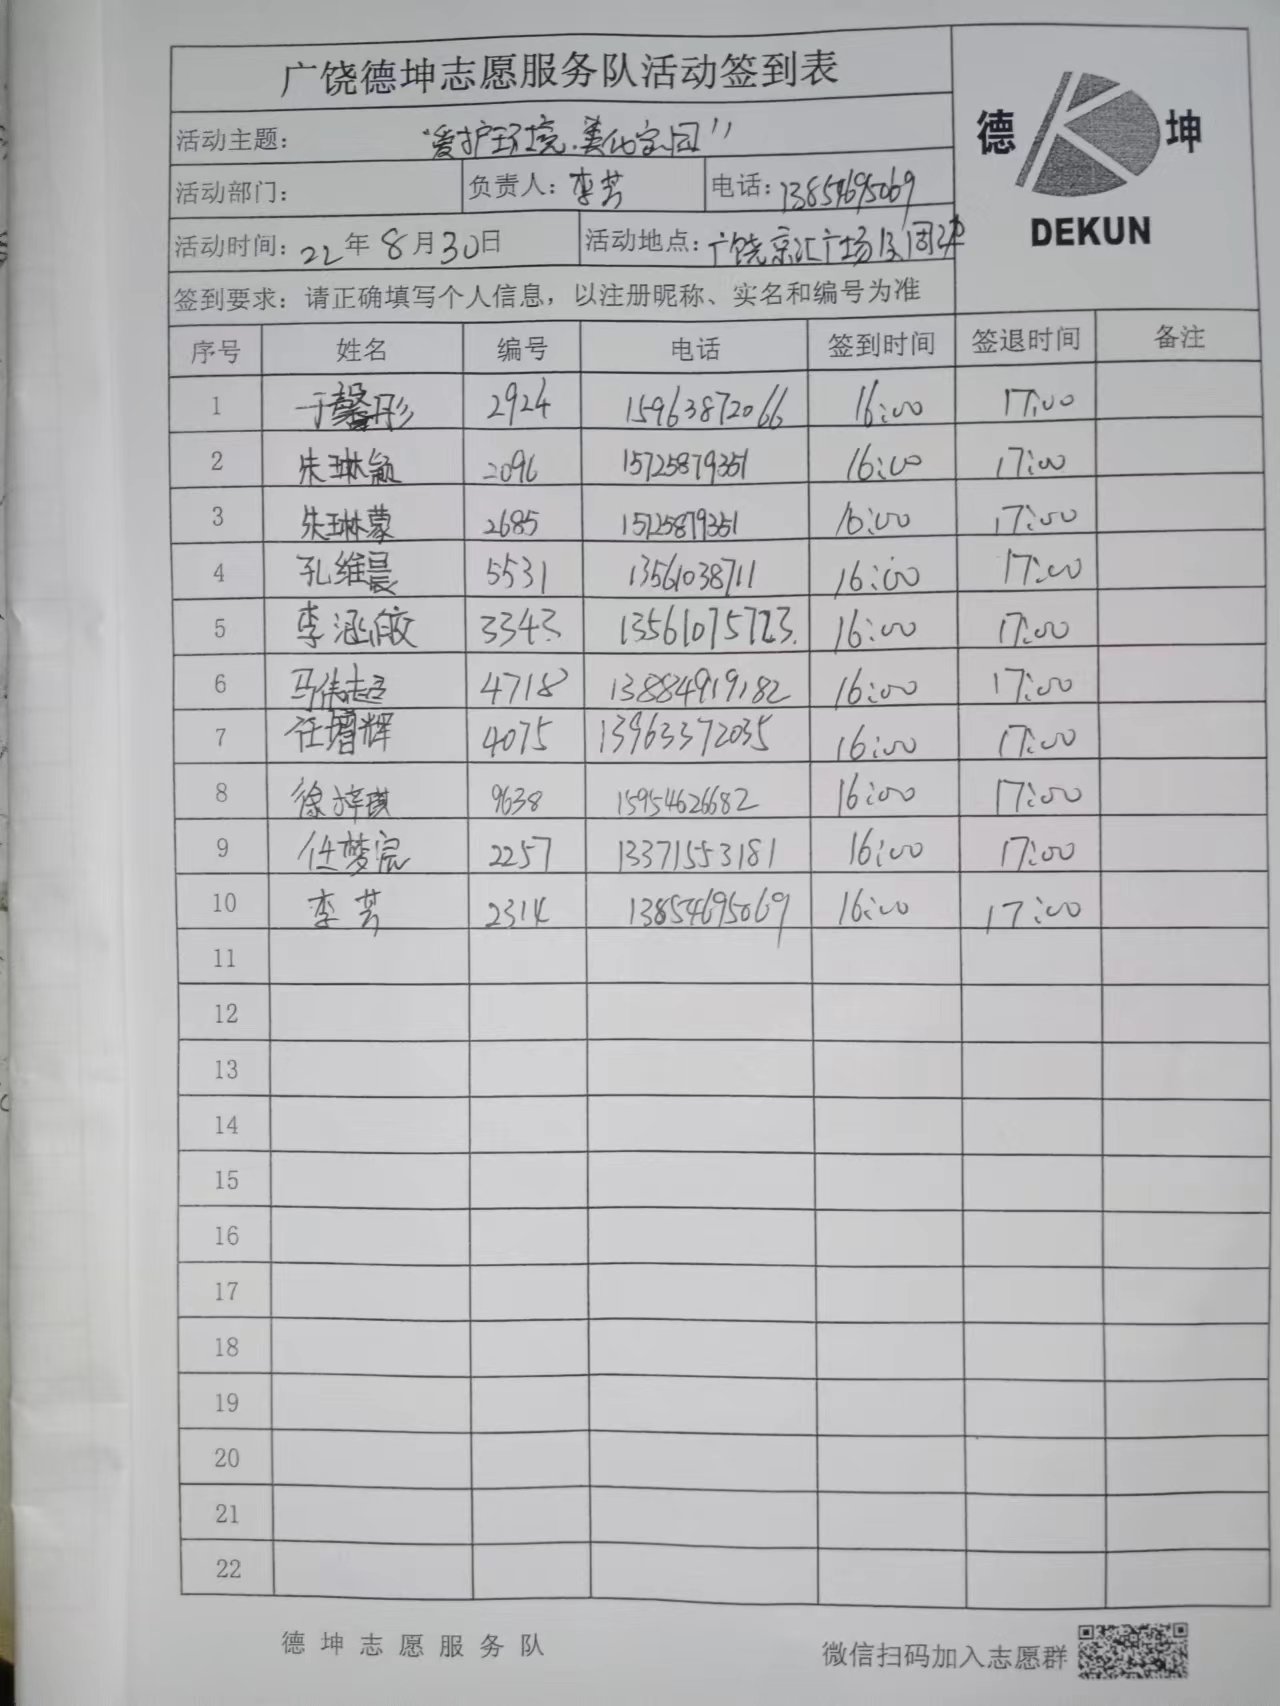 广饶德坤志愿服务队活动签到表
活动主题: "爱护环境.美化家园"
德 坤
DEKUN
活动部门: 负责人: 李芸 电话: 13854695069
活动时间: 22年8月30日 活动地点: 广饶京汇广场及周边
签到要求: 请正确填写个人信息，以注册昵称、实名和编号为准
序号 姓名 编号 电话 签到时间 签退时间 备注
1 于馨彤 2924 15963872066 16:00 17:00
2 朱琳颖 2096 15725879351 16:00 17:00
3 朱琳蒙 2685 15725879351 16:00 17:00
4 孔维晨 5531 13561038711 16:00 17:00
5 李涵皎 3343 13561075723 16:00 17:00
6 马伟 4718 13884919182 16:00 17:00
7 任增辉 4075 13963372035 16:00 17:00
8 徐梓琪 9638 15954626682 16:00 17:00
9 任梦宸 2257 13371553181 16:00 17:00
10 李芸 2314 13854695069 16:00 17:00
11
12
13
14
15
16
17
18
19
20
21
22
德坤志愿服务队 微信扫码加入志愿群